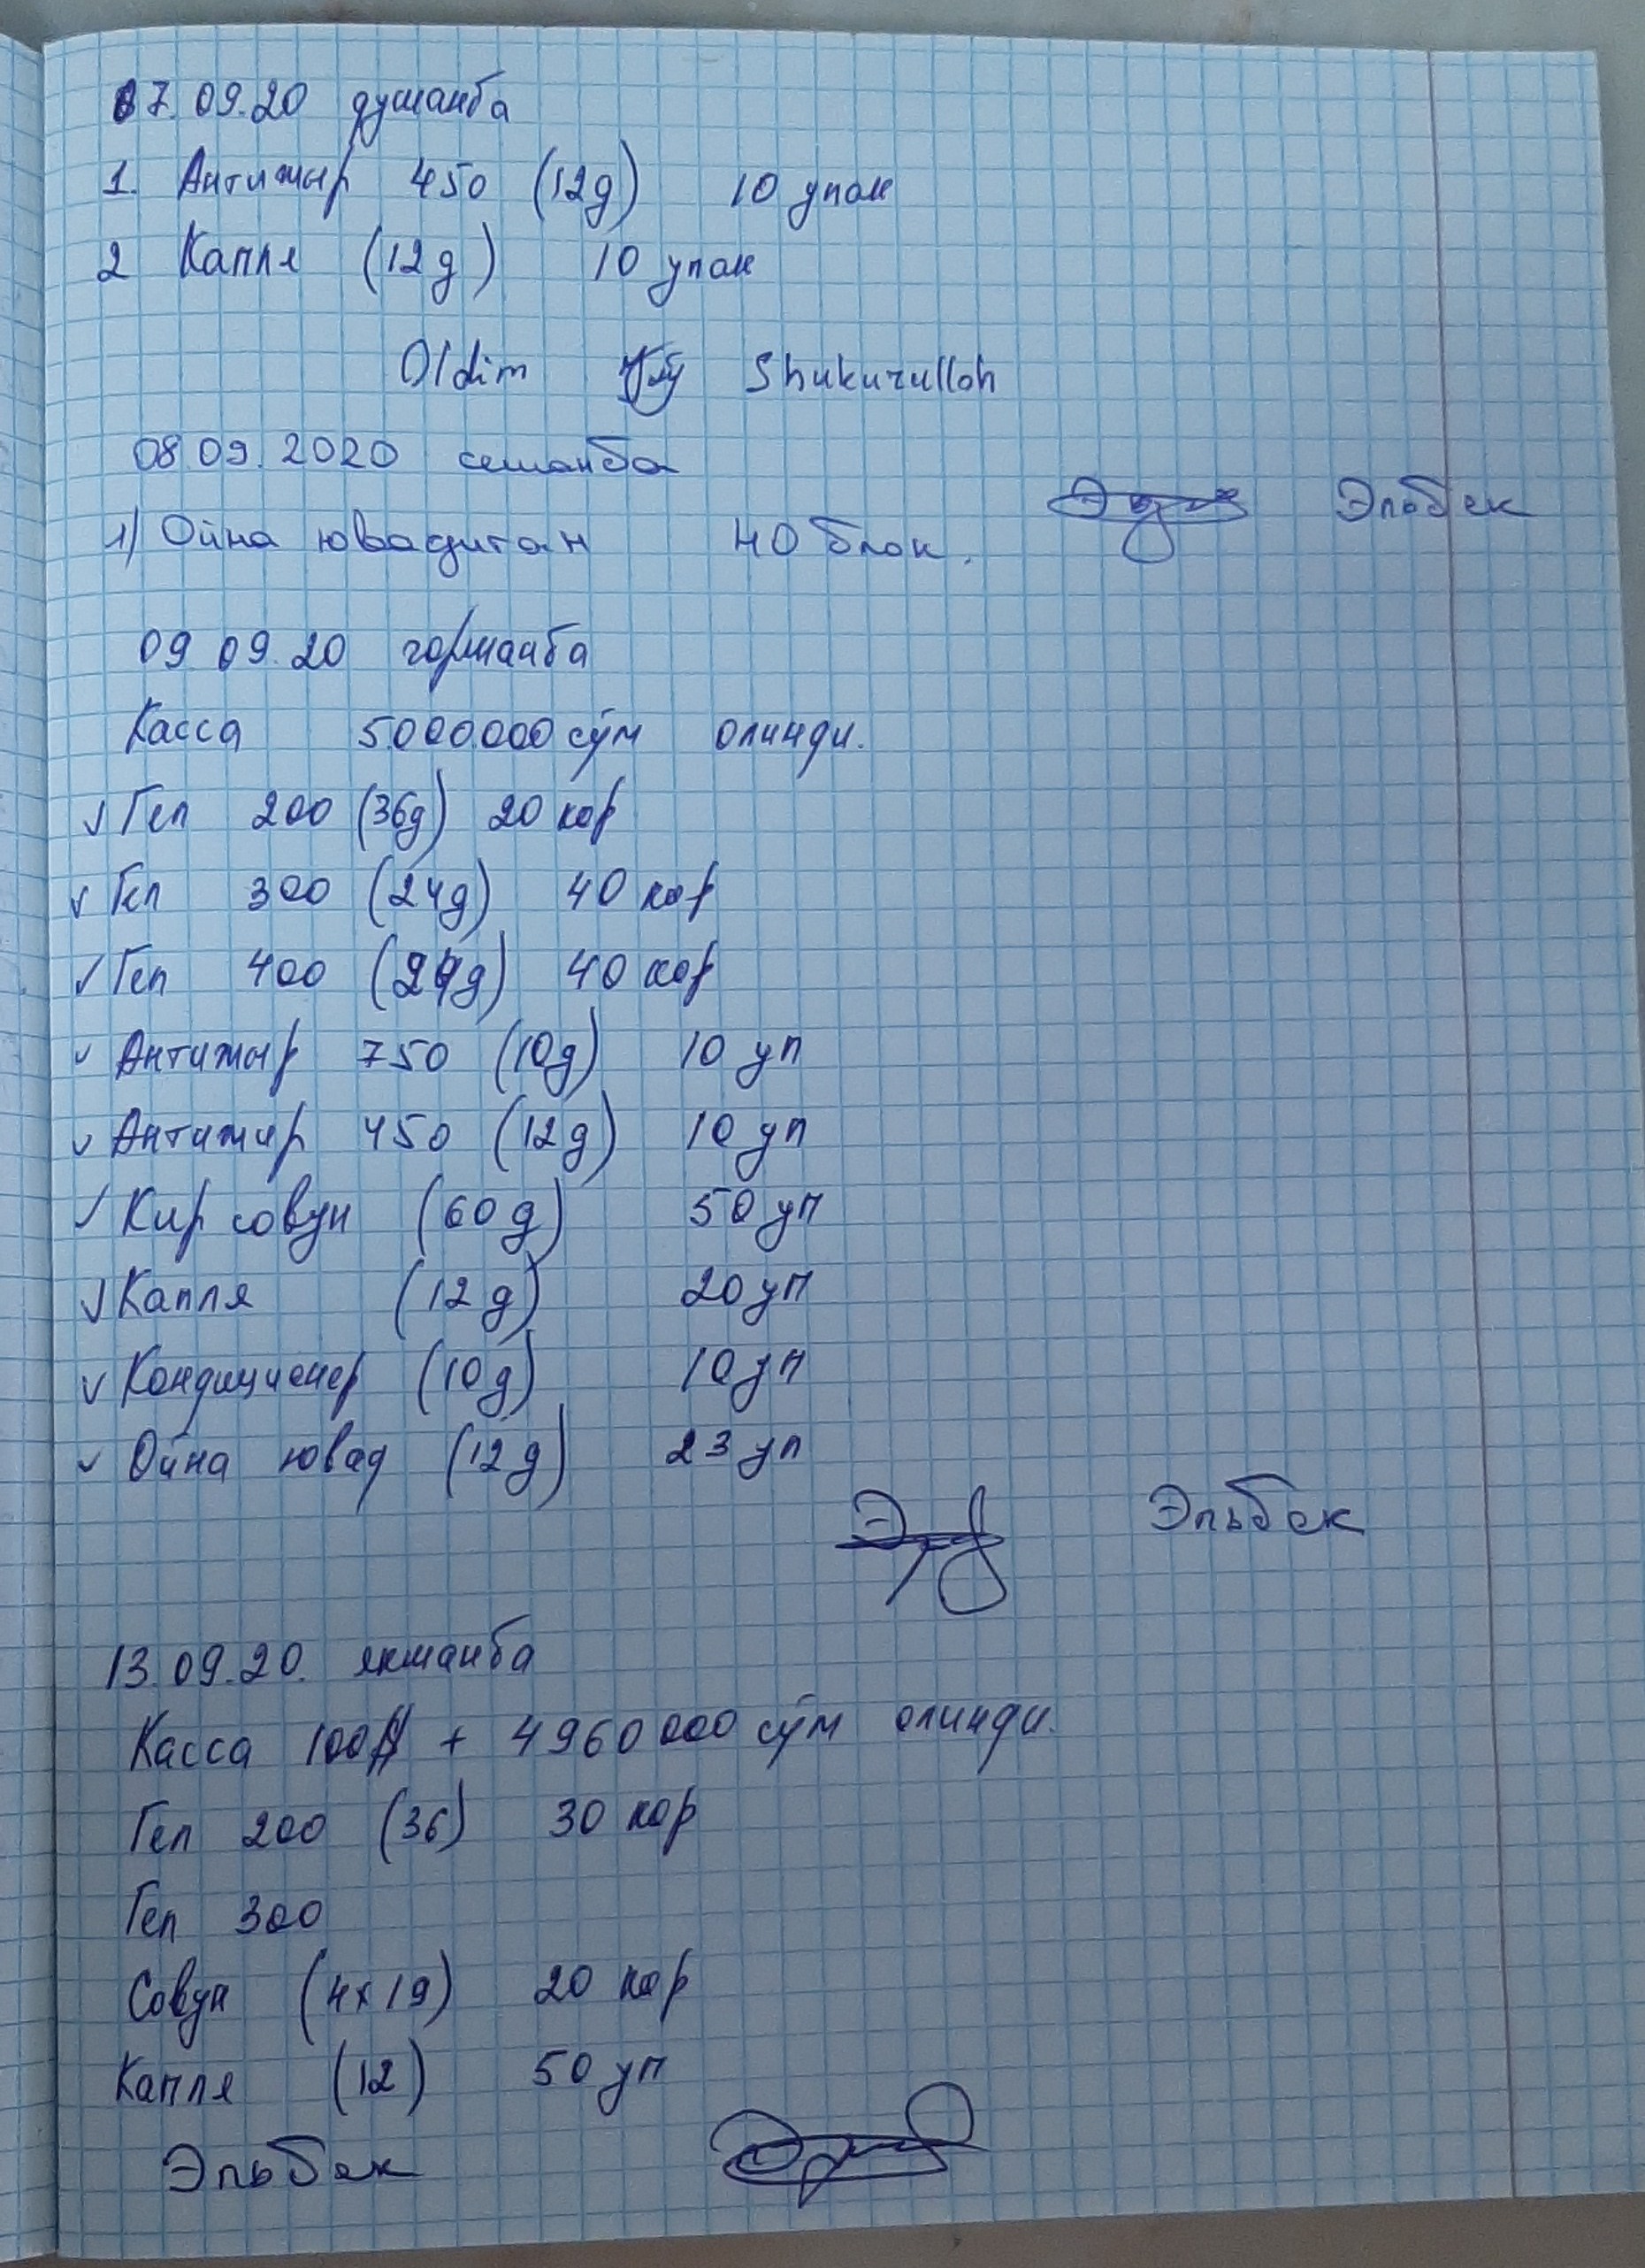 07.09.20 душанба
1. Антижыр 450 (12д) 10 упак
2 Капля (12д) 10 упак
Oldim Shukurulloh
08.09.2020 сешанба
Эльбек
1) Ойна ювадиган 40 блок.
09.09.20 горшанба
Касса 5000000 сўм олинди.
✓ Гел 200 (36д) 20 кор
✓ Гел 300 (24д) 40 кор
✓ Гел 400 (24д) 40 кор
✓ Антижыр 750 (10д) 10 уп
✓ Антижир 450 (12д) 10 уп
✓ Кир совун (60д) 50 уп
✓ Капля (12д) 20 уп
✓ Кондиционер (10д) 10 уп
✓ Ойна ювад (12д) 23 уп
Эльбек
13.09.20. якшанба
Касса 100$ + 4960000 сўм олинди.
Гел 200 (36) 30 кор
Гел 300
Совун (4x19) 20 кор
Капля (12) 50 уп
Эльбек